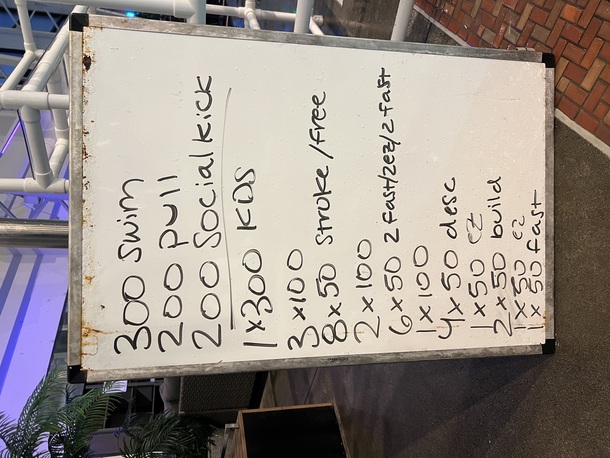 300 swim
200 pull
200 Social kick
1x300 KDS
3 x100
8 x 50 stroke/free
2 x 100
6 x 50 2 fast/2ez/2 fast
1x100
4 x 50 desc
1 x 50 ez
2 x 50 build
1 x 50 ez
1 x 50 fast